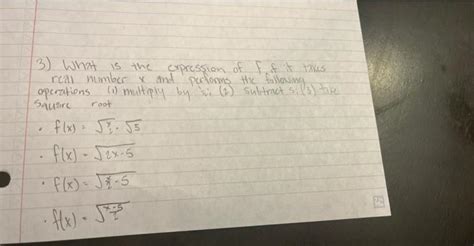 3) What is the expression of f if it takes
real number x and performs the following
operations (1) multiply by ½; (2) subtract 5; (3) take
square root
• f(x) = √x/2 - √5
• f(x) = √2x-5
• f(x) = √x/2 - 5
• f(x) = √x-5/2